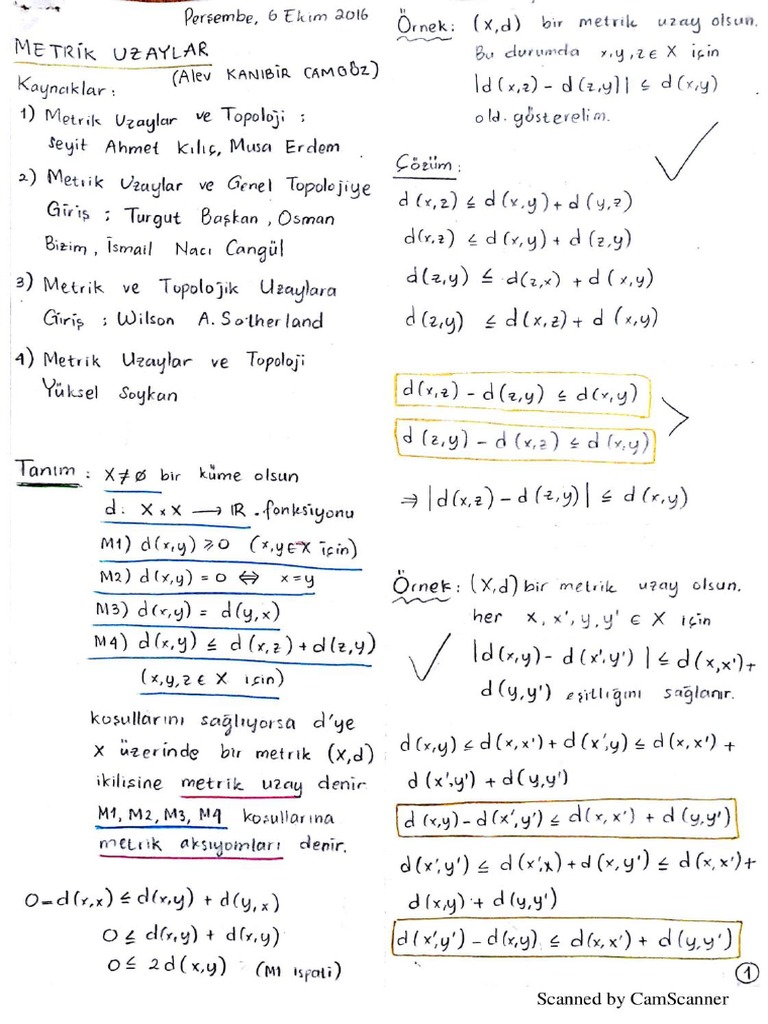 Perşembe, 6 Ekim 2016
METRİK UZAYLAR
(Alev KANIBİR CAMGÖZ)
Kaynaklar :
1) Metrik Uzaylar ve Topoloji :
Seyit Ahmet Kılıç, Musa Erdem
2) Metrik Uzaylar ve Genel Topolojiye
Giriş ; Turgut Başkan, Osman
Bizim, İsmail Nacı Cangül
3) Metrik ve Topolojik Uzaylara
Giriş ; Wilson A. Sotherland
4) Metrik Uzaylar ve Topoloji
Yüksel Soykan
Tanım : X≠∅ bir küme olsun
d: X x X → IR fonksiyonu
M1) d(x,y) ≥ 0 (x,y∈X için)
M2) d(x,y) = 0 ⇔ x=y
M3) d(x,y) = d(y,x)
M4) d(x,y) ≤ d(x,z) + d(z,y)
(x,y,z ∈ X için)
koşullarını sağlıyorsa d'ye
X üzerinde bir metrik (x,d)
ikilisine metrik uzay denir.
M1, M2, M3, M4 koşullarına
metrik aksiyomları denir.
0=d(x,x) ≤ d(x,y) + d(y,x)
0 ≤ d(x,y) + d(x,y)
0 ≤ 2d(x,y) (M1 ispatı)
Örnek : (x,d) bir metrik uzay olsun.
Bu durumda x,y,z ∈ X için
|d(x,z) - d(z,y)| ≤ d(x,y)
old. gösterelim.
Çözüm :
d(x,z) ≤ d(x,y) + d(y,z)
d(x,z) ≤ d(x,y) + d(z,y)
d(z,y) ≤ d(z,x) + d(x,y)
d(z,y) ≤ d(x,z) + d(x,y)
d(x,z) - d(z,y) ≤ d(x,y)
d(z,y) - d(x,z) ≤ d(x,y)
⇒ |d(x,z) - d(z,y)| ≤ d(x,y)
Örnek : (X,d) bir metrik uzay olsun.
her x, x', y, y' ∈ X için
|d(x,y) - d(x',y')| ≤ d(x,x') +
d(y,y') eşitliğini sağlanır.
d(x,y) ≤ d(x,x') + d(x',y) ≤ d(x,x') +
d(x',y') + d(y,y')
d(x,y) - d(x',y') ≤ d(x,x') + d(y,y')
d(x',y') ≤ d(x',x) + d(x,y') ≤ d(x,x') +
d(x,y) + d(y,y')
d(x',y') - d(x,y) ≤ d(x,x') + d(y,y')
1
Scanned by CamScanner